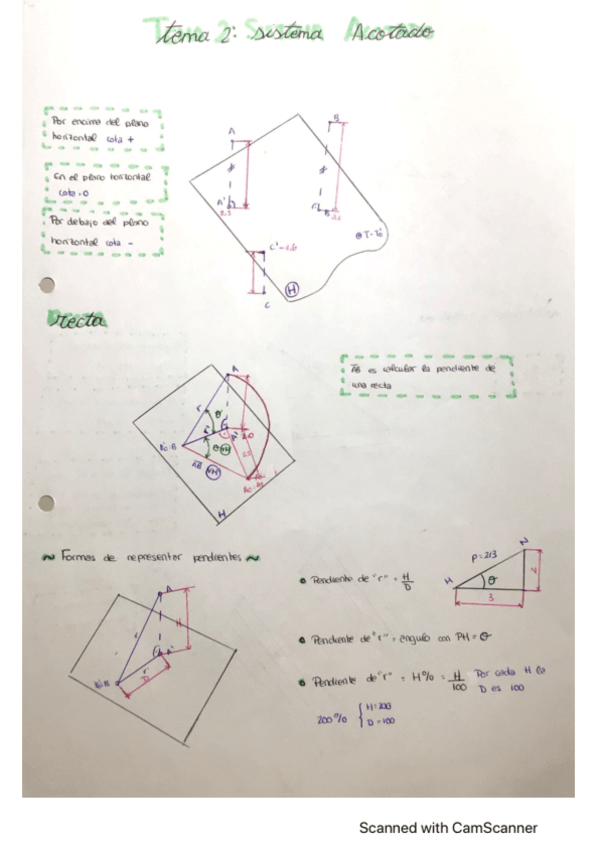 Tema 2: Sistema Acotado
Por encima del plano
horizontal cota +
En el plano horizontal
cota = 0
Por debajo del plano
horizontal cota -
A
B
A'
C'
C
H
recta
AB es calcular la pendiente de
una recta
A
r
θ
A'
θ
VM
AB
VM
H
~ Formas de representar pendientes ~
A
H
r
A'
D
• Pendiente de "r" = H/D
p = 2/3
N
M
θ
2
3
• Pendiente de "r" = ángulo con PH = θ
• Pendiente de "r" = H% = H/100 Por cada H la
D es 100
200% { H=200
D=100
Scanned with CamScanner